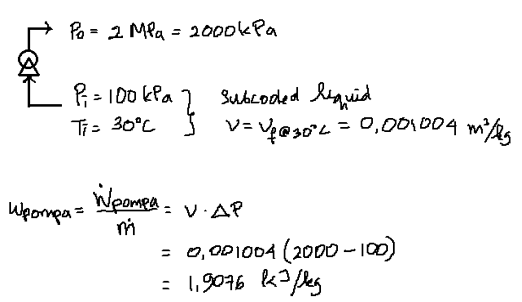 P₀ = 2 MPa = 2000 kPa
Pᵢ = 100 kPa } Subcooled liquid
Tᵢ = 30°C } v = v_f@30°C = 0,001004 m³/kg
Wpompa = Ẇpompa / ṁ = v · ΔP
= 0,001004 (2000 − 100)
= 1,9076 kJ/kg